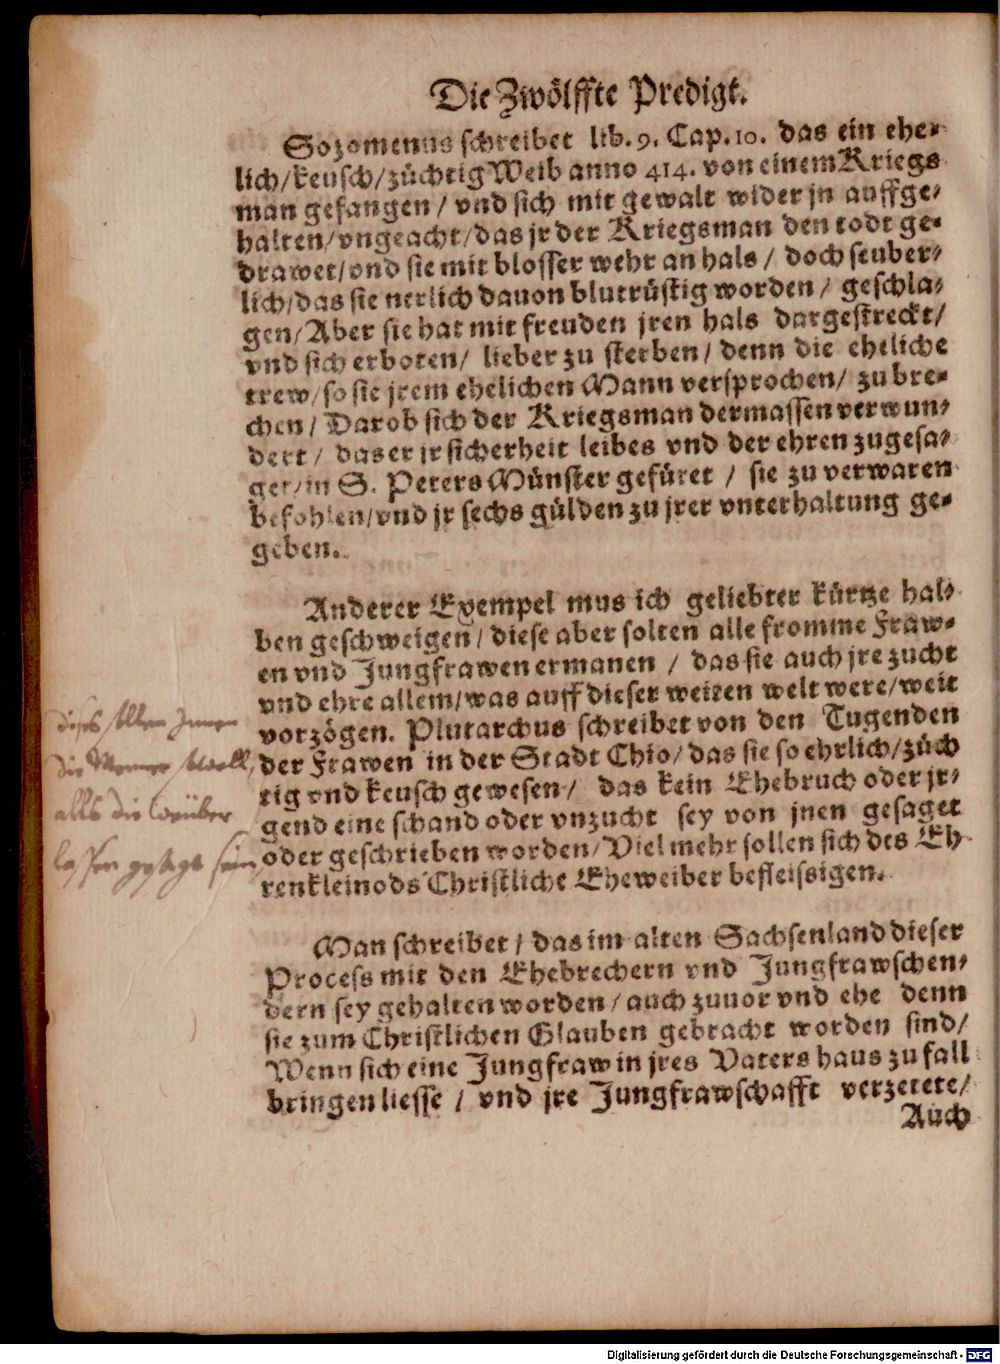 Die Zwölffte Predigt.
Sozomenus schreibet lib. 9. Cap. 10. das ein ehe-
lich/keusch/züchtig Weib anno 414. von einem Kriegs
man gefangen / vnd sich mit gewalt wider jn auffge-
halten/vngeacht/das jr der Kriegsman den todt ge-
drawet/vnd sie mit blosser wehr an hals / doch seuber-
lich/das sie nerlich dauon blutrüstig worden / geschla-
gen/Aber sie hat mit freuden jren hals dargestreckt/
vnd sich erboten/ lieber zu sterben / denn die eheliche
trew/so sie jrem ehelichen Mann versprochen/ zu bre-
chen / Darob sich der Kriegsman dermassen verwun-
dert / das er jr sicherheit leibes vnd der ehren zugesa-
get/in S. Peters Münster gefüret / sie zu verwaren
befohlen/vnd jr sechs gülden zu jrer vnterhaltung ge-
geben.
Anderer Exempel mus ich geliebter kürtze hal-
ben geschweigen / diese aber solten alle fromme Fraw-
en vnd Jungfrawen ermanen / das sie auch jre zucht
vnd ehre allem/was auff dieser weiten welt were/weit
vorzögen. Plutarchus schreibet von den Tugenden
der Frawen in der Stadt Chio/das sie so ehrlich/züch
tig vnd keusch gewesen / das kein Ehebruch oder jr-
gend eine schand oder vnzucht sey von jnen gesaget
oder geschrieben worden/Viel mehr sollen sich des Eh
renkleinods Christliche Eheweiber befleissigen.
die
alls die
gesagt sein
Man schreibet / das im alten Sachsenland dieser
Process mit den Ehebrechern vnd Jungfrawschen-
dern sey gehalten worden / auch zuuor vnd ehe denn
sie zum Christlichen Glauben gebracht worden sind/
Wenn sich eine Jungfraw in jres Vaters haus zu fall
bringen liesse / vnd jre Jungfrawschafft verzetete/
Auch
Digitalisierung gefördert durch die Deutsche Forschungsgemeinschaft - DFG